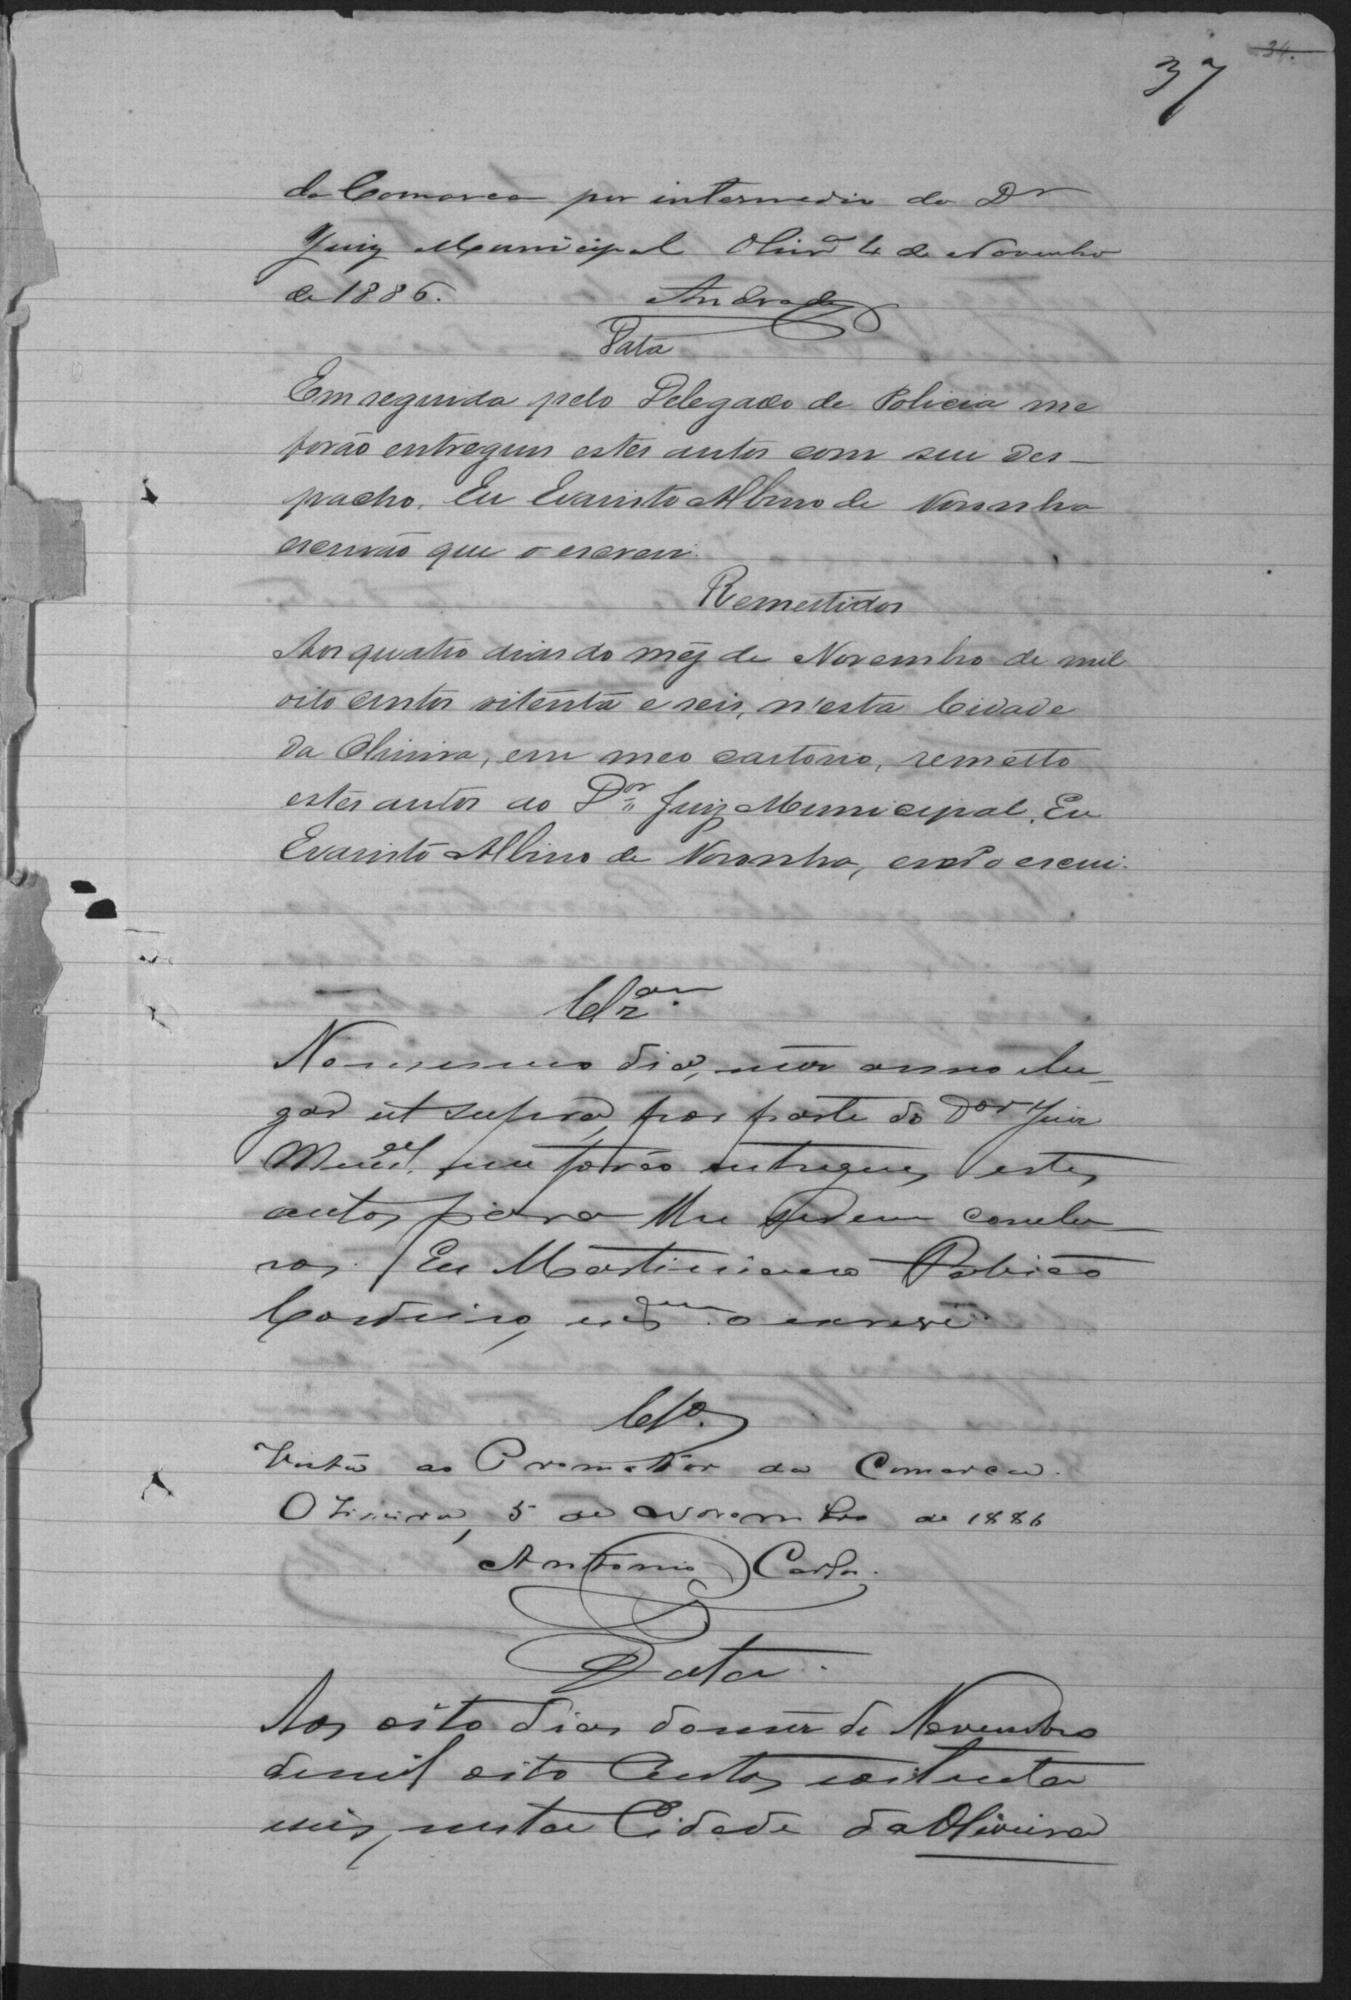 34.
37
da Comarca por intermedio do Dr
Juiz Municipal Olivra 4 de Novembro
de 1886. Andrade
Data
Em seguida pelo Delegado de Policia me
forão entregues estes autos com seu des-
pacho. Eu Evaristo Albino de Noronha
escrivão que o escrevi.
Remettidos
Aos quatro dias do mêz de Novembro de mil
oito centos oitenta e seis, n'esta Cidade
da Oliveira, em meo cartorio, remetto
estes autos ao Dor Juiz Municipal. Eu
Evaristo Albino de Noronha, escrvão o escrevi.
No mesmo dia, mez anno e lu-
gar ut supra, por parte do Dor Juiz
Munal me forão entregues estes
autos para lhe serem conclu-
sos. Eu Martiniano
Cordeiro, o escrevi
Clo.
Vista ao Promottor da Comarca.
Oliveira, 5 de Novembro de 1886
Antonio Carlos.
Data.
Aos oito dias do mez de Novembro
de mil oito Centos e oitenta
e seis, nesta Cidade da Oliveira